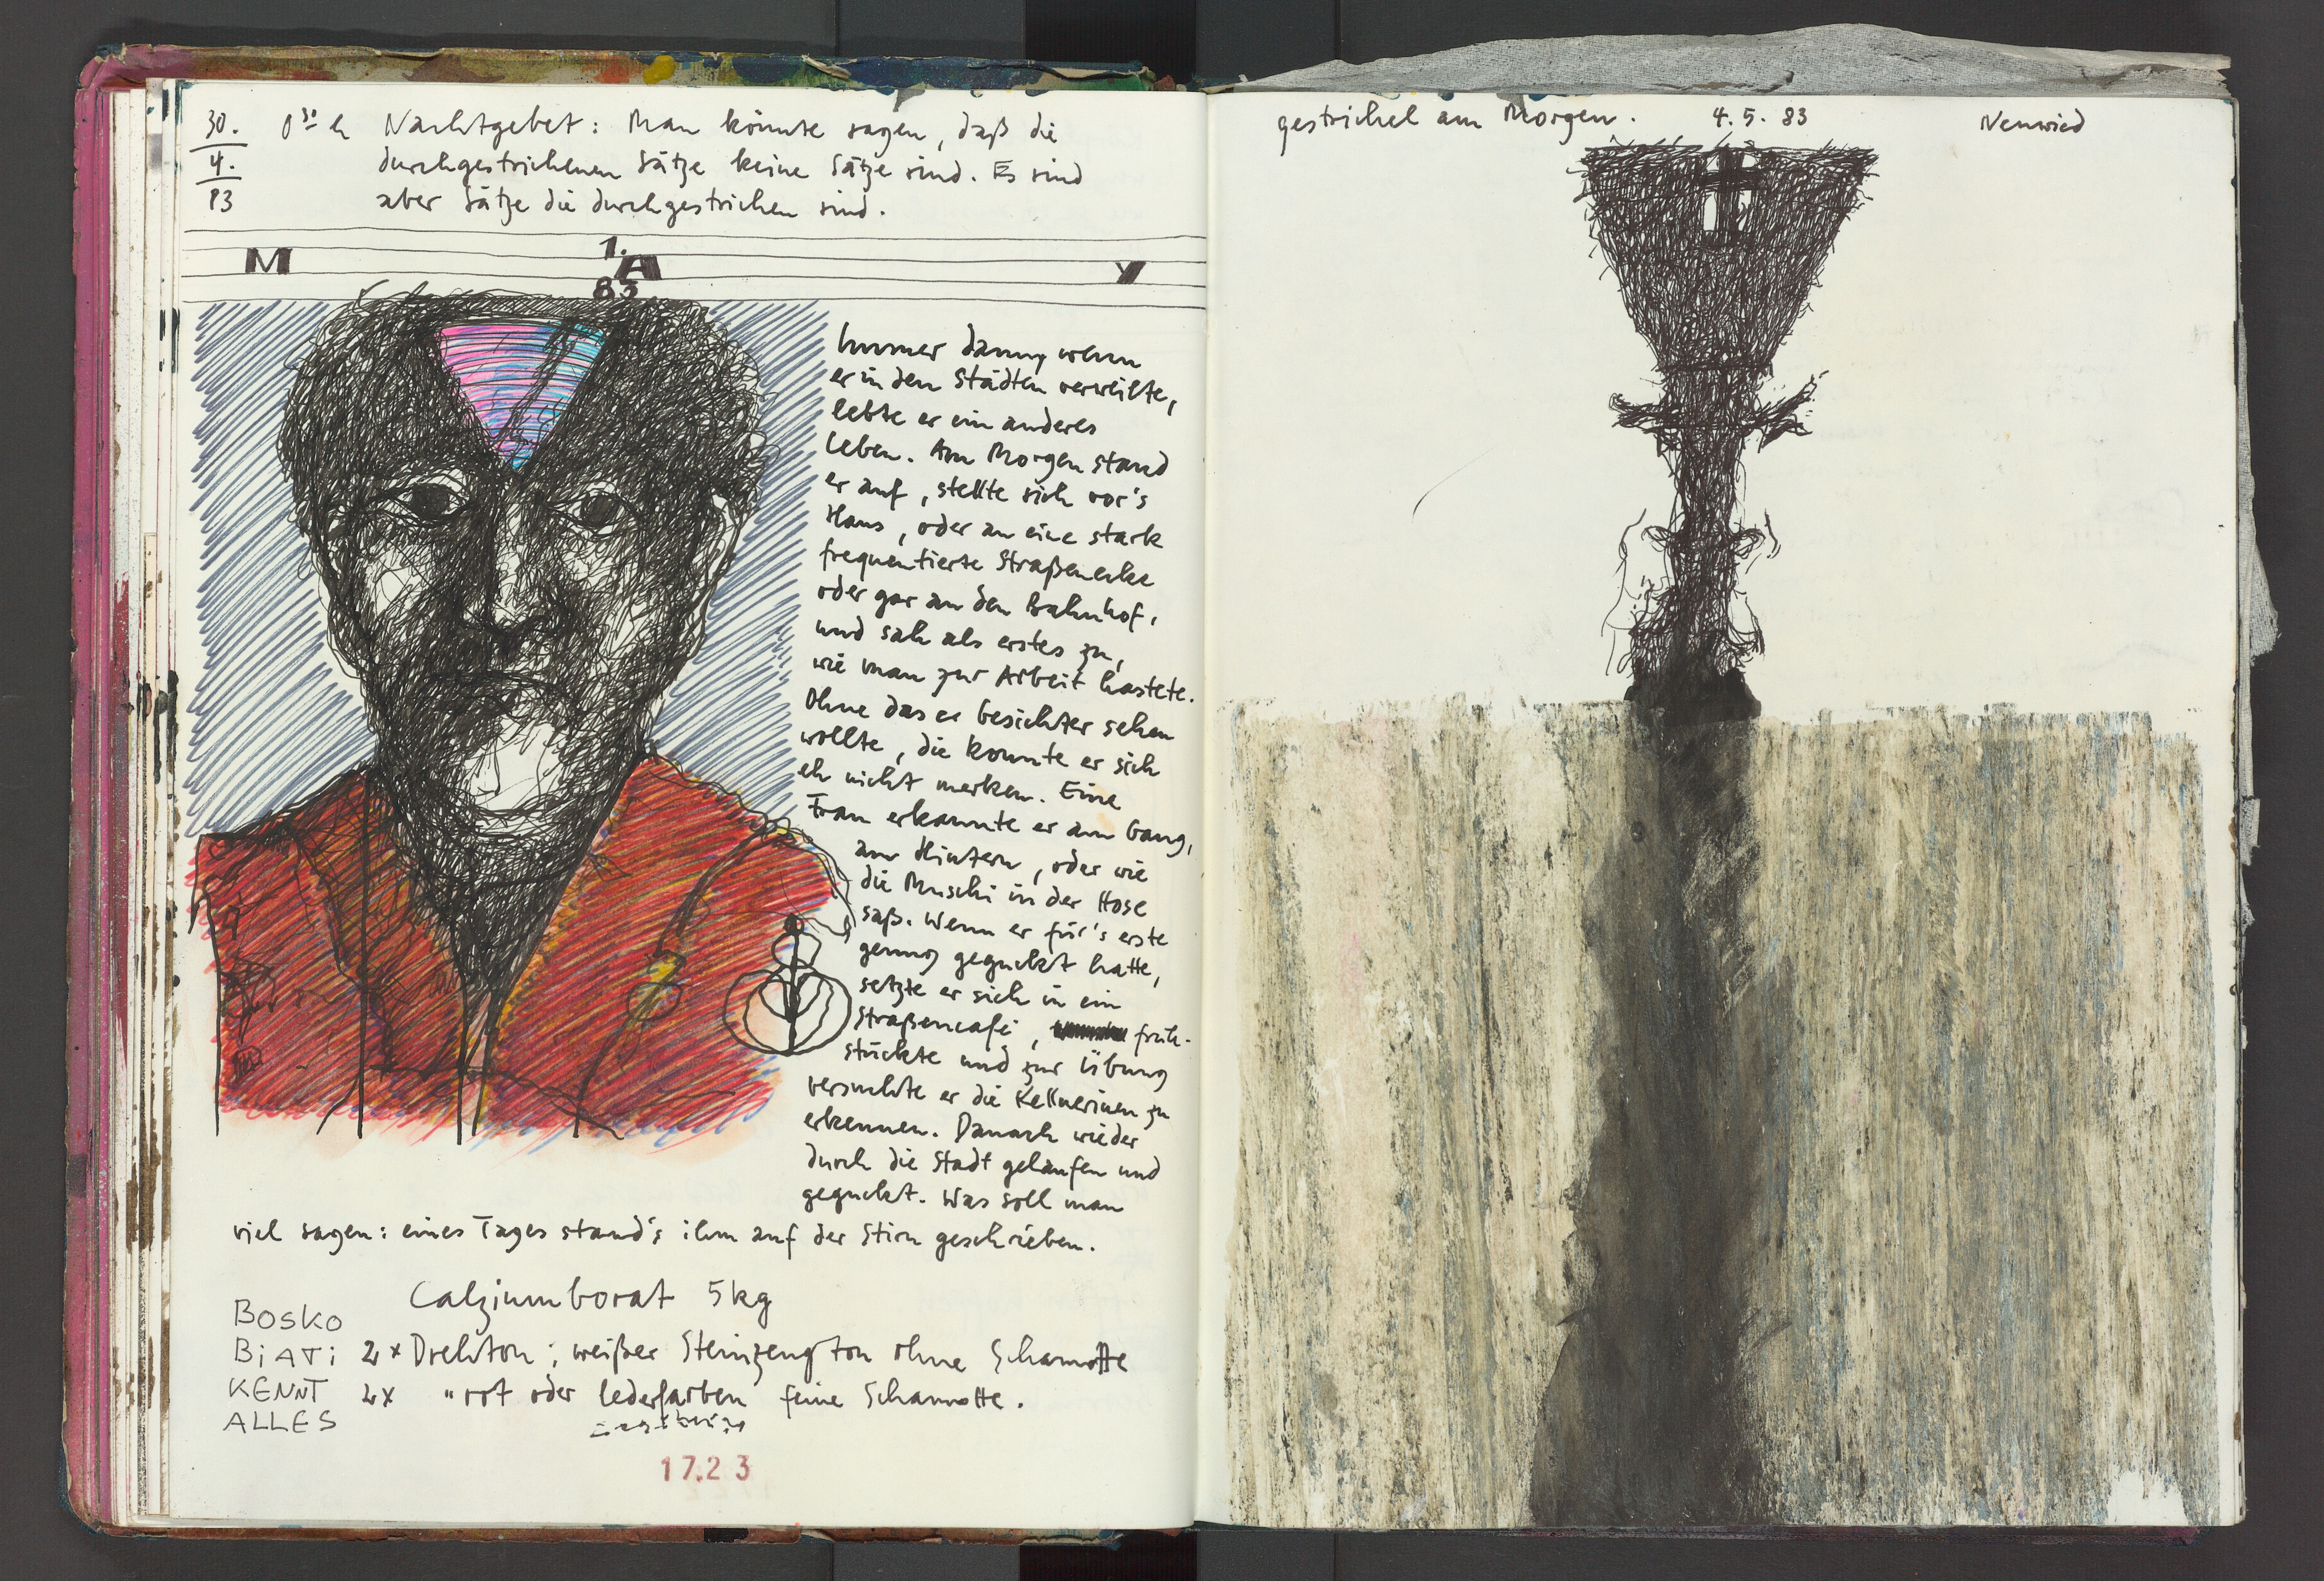 30. 0³⁰ h Nachtgebet: Man könnte sagen, daß die
4. durchgestrichenen Sätze keine Sätze sind. Es sind
83 aber Sätze die durchgestrichen sind.
M 1. A Y
83
Immer dann, wenn
er in den Städten verweilte,
lebte er ein anderes
Leben. Am Morgen stand
er auf, stellte sich vor's
Haus, oder an eine stark
frequentierte Straßenecke
oder gar an den Bahnhof,
und sah als erstes zu,
wie man zur Arbeit hastete.
Ohne das er Gesichter sehen
wollte, die konnte er sich
eh nicht merken. Eine
Frau erkannte er am Gang,
am Hintern, oder wie
die Muschi in der Hose
saß. Wenn er für's erste
genug geguckt hatte,
setzte er sich in ein
Straßencafé, früh-
stückte und zur Übung
versuchte er die Kellnerinen zu
erkennen. Danach wieder
durch die Stadt gelaufen und
geguckt. Was soll man
viel sagen: eines Tages stand's ihm auf der Stirn geschrieben.
Calziumborat 5kg
BOSKO
BiATi 2x Drehton; weißer Steinzeugton ohne Schamotte
KENNT 2x " rot oder lederfarben feine Schamotte.
ALLES
17.23
gestrichel am Morgen. 4.5.83 Neuwied